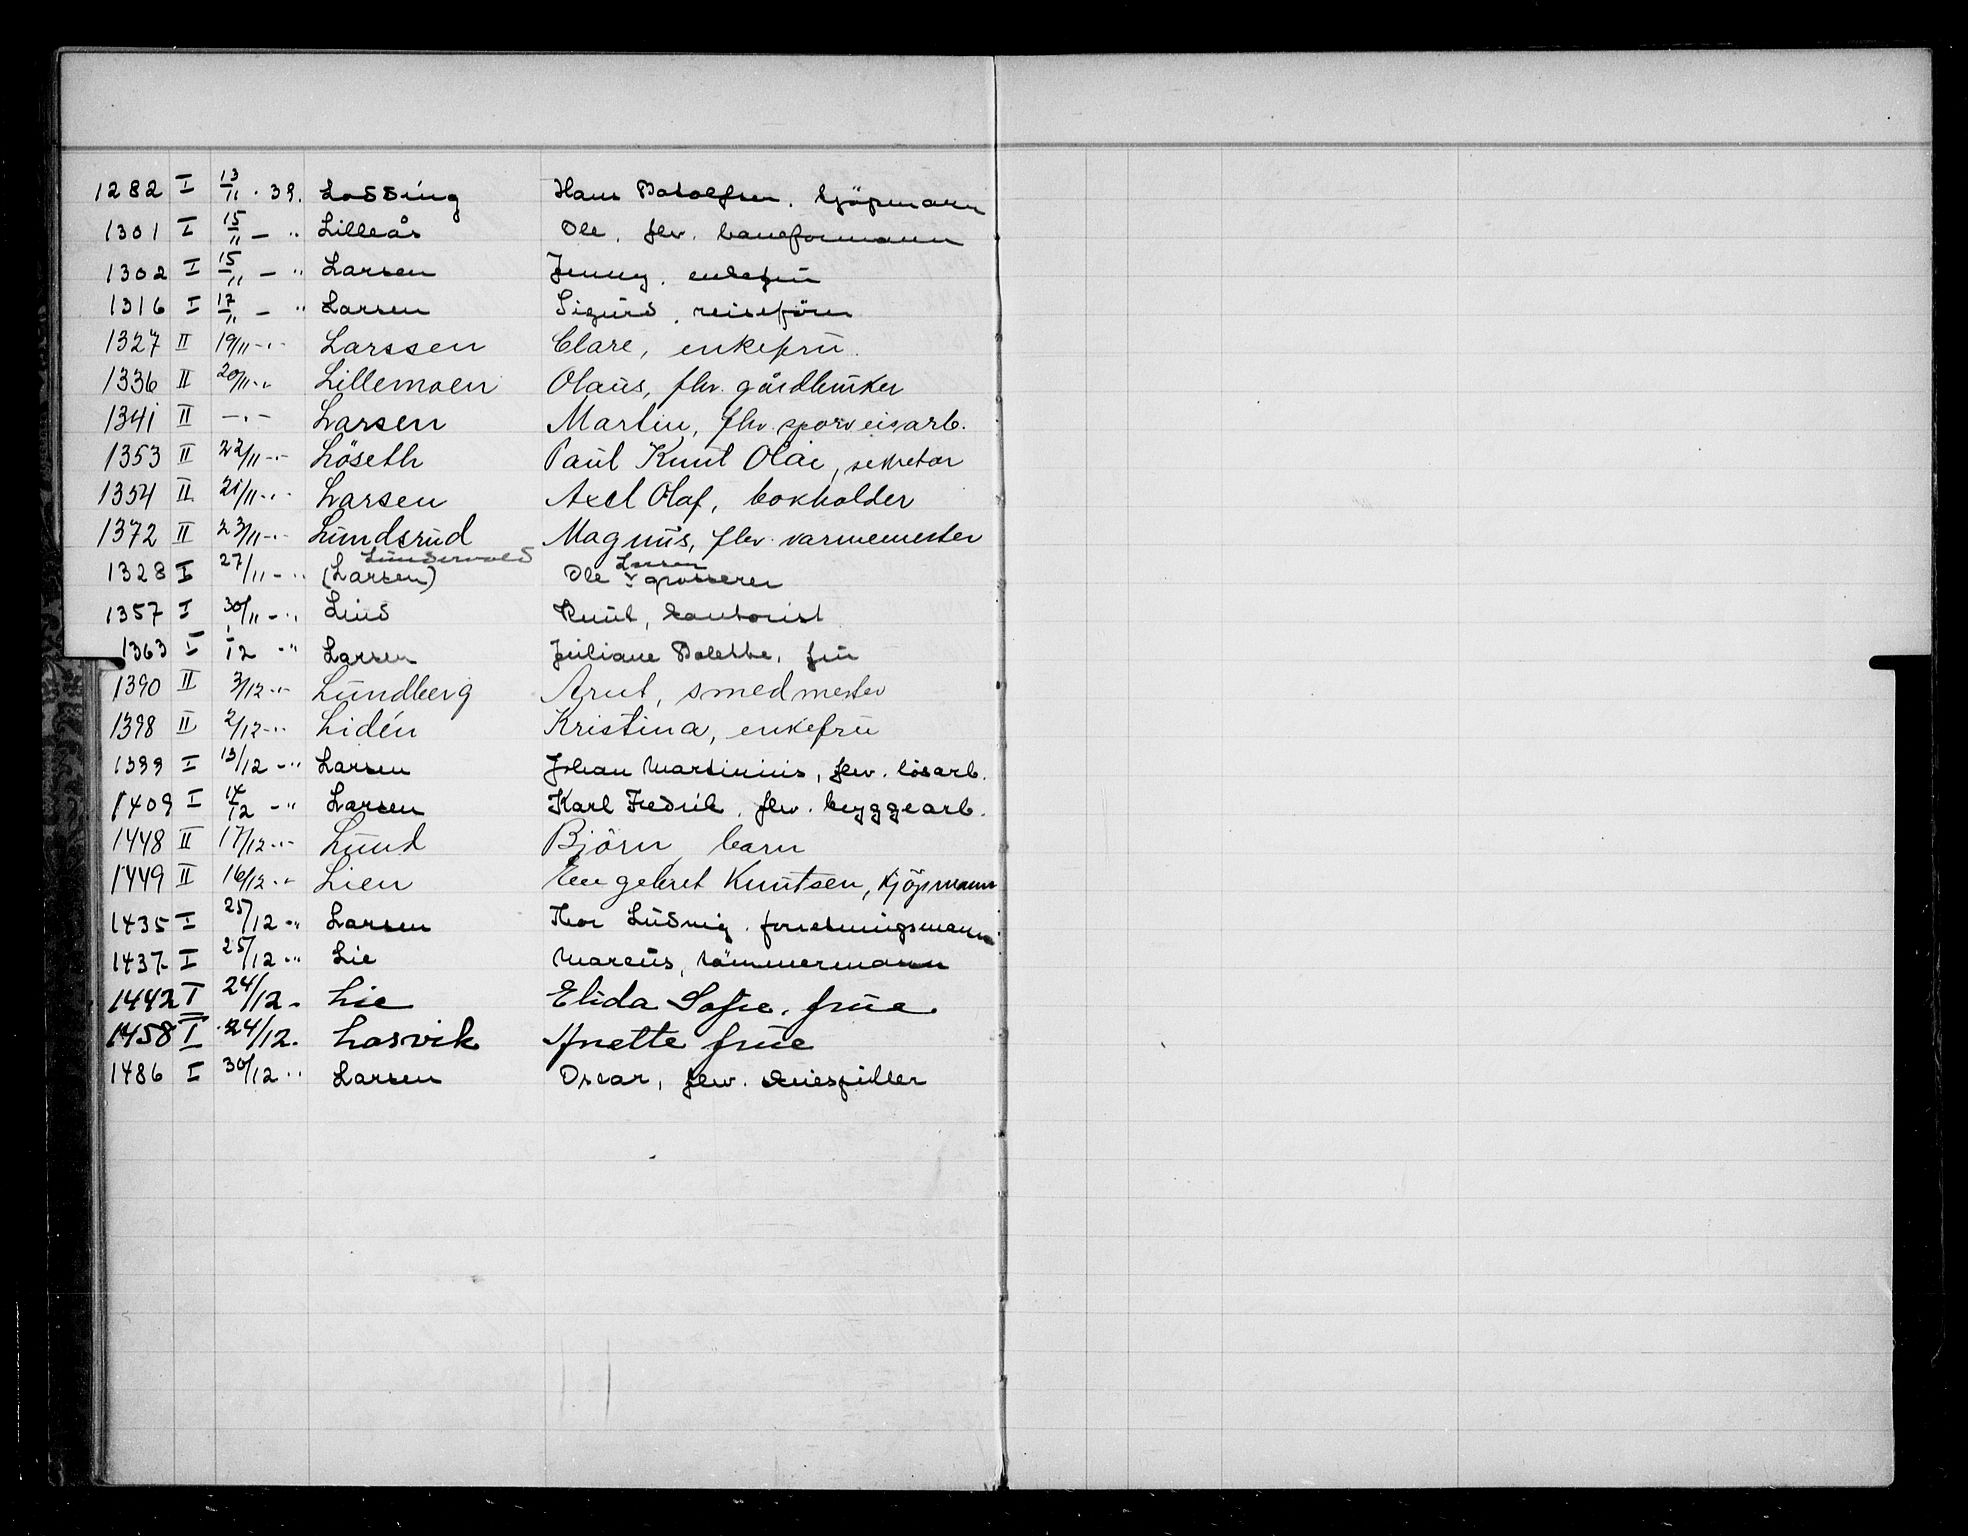 1282 I 13/11 · 39. Lossing Hans Botolfsen, kjöpmann
1301 I 15/11 - " Lilleås Ole, flv. baneformann
1302 I 15/11 - " Larsen Jenny, enkefru
1316 I 17/11 - " Larsen Sigurd, reisefören
1327 II 19/11 - " - Larssen Clare, enkefru
1336 II 20/11 - " Lillemoen Olaus, fhv. gårdbruker
1341 II - " - Larsen Martin, fhv. sporveisarb.
1353 II 22/11 - " - Löseth Paul Knut Olai, sekretær
1354 II 21/11 - " - Larsen Axel Olaf, bokholder
1372 II 23/11 - " - Lundsrud Magnus, fhv. varmemester
Lundervold Larsen
1328 I 27/11 - " (Larsen) Ole v grosserer
1357 I 30/11 - " Lind Knut, kontorist
1363 I 1/12 - " Larsen Juliane Bolette, fru
1390 II 3/12 - " - Lundberg Arnt, smedmester
1398 II 2/12 - " Lidén Kristina, enkefru
1399 I 13/12 - " Larsen Johan Martinius, flv. lösarb.
1409 I 14/12 - " Larsen Karl Fredrik, flv. bryggearb.
1448 II 17/12 - " - Lund Björn, barn
1449 II 16/12 - " - Lien Engebret Knutsen, kjöpmann
1435 I 25/12 - " Larsen Thor Ludvig, forretningsmann
1437 I 25/12 - " Lie Marcus, tömmermann
1442 I 24/12 - Lie Elida Sofie, frue
1458 I 24/12. Losvik Anette frue
1486 I 30/12 " Larsen Oscar, flv. skuespiller